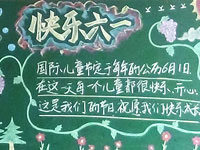 快乐六一
国际儿童节定于每年的公历6月1日
在这一天每个儿童都很快乐、开心
这是我们的节日,祝愿我们快乐成长